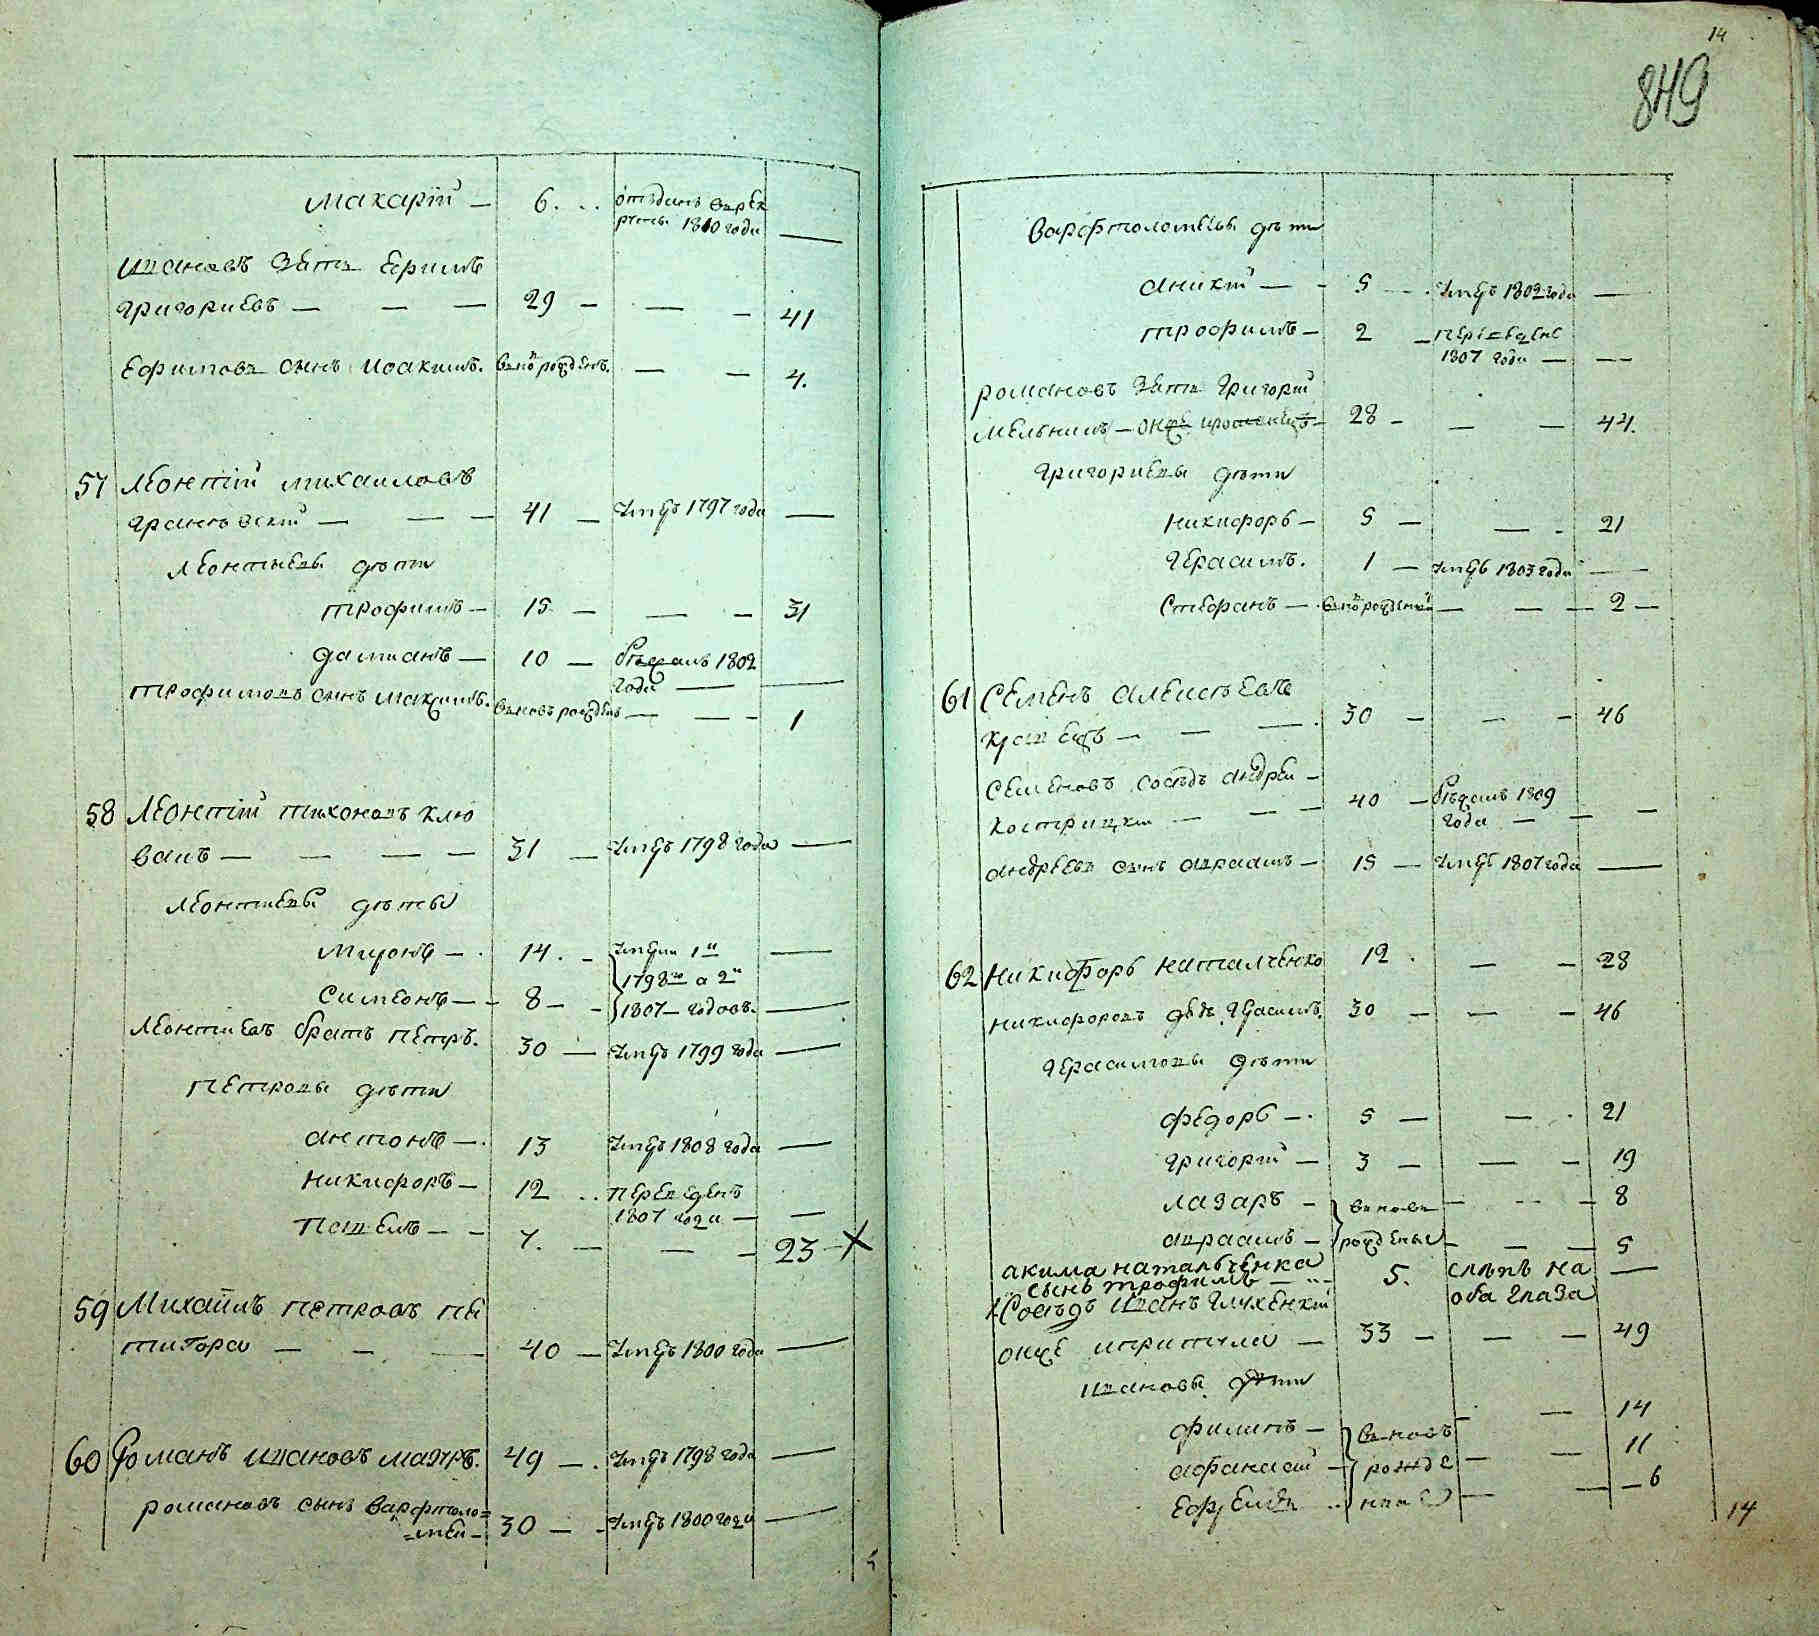 Макарій — 6. отъданъ врек
руты 1810 года —
Ивановъ зять Ефимъ
Григориевъ — 29 — — 41
Ефимовъ сынъ Иоакимъ. вновь рожденъ. — — 4.
57 Леонтій Михаиловъ
41 — умеръ 1797 года —
Леонтиевы дѣти
Трофимъ — 15 — — 31
Дамианъ — 10 — бѣжалъ 1802
года —
Трофимовъ сынъ Максимъ. вновь рожденъ — — 1
58 Леонтій Тихоновъ Клю
вакъ — 31 — умеръ 1798 года —
Леонтиевы дѣты
Миронъ — 14. — умерли 1й —
Симеонъ — 8 — 1798го а 2й
1807 годовъ. —
Леонтиевъ братъ Петръ. 30 — умеръ 1799 года —
Петровы дѣти
Антонъ — 13 умеръ 1808 года —
Никифоръ — 12 переведенъ
1807 года — —
Павелъ — 7. — — 23 X
59 Михайлъ Петровъ Пи
тигора — 40 — умеръ 1800 года —
60 Романъ Ивановъ 49 — умеръ 1798 года —
Романовъ сынъ Варфтоло=
=мей — 30 — умеръ 1800 года —
14
849
Варфтоломеевы дѣти
Аникій — 5 — умеръ 1802 года —
Трофимъ — 2 — переведенъ
1807 года — —
Романовъ зять Григорій
Мельникъ — онже 28 — — 44.
Григориевы дѣти
Никифоръ — 5 — — 21
Герасимъ. 1 — умеръ 1803 года —
Стефанъ — вновь рожденный — — 2 —
61 Семенъ Алексѣевъ
Кравецъ — 30 — — 46
Семеновъ сосѣдъ Андрей —
Кострицкій — 40 — бѣжалъ 1809
года — —
Андреевъ сынъ Авраамъ — 15 — умеръ 1807 года —
62 Никифоръ Наталченко 12. — — 28
Никифоровъ дядь Герасимъ. 30 — — 46
Герасимовы дѣти
Федоръ — 5 — — 21
Григорій — 3 — — 19
Лазаръ — вновь — 8
Авраамъ — рождены — — 5
Акима Натальченка
сынъ Трофимъ — 5. слѣпъ на —
оба глаза
Сосѣдъ Иванъ Глухенкій
онже 33 — — 49
Ивановы дѣти
Филипъ — вновь — 14
Афанасій — рожде — 11
Ефремъ нные — 6
14